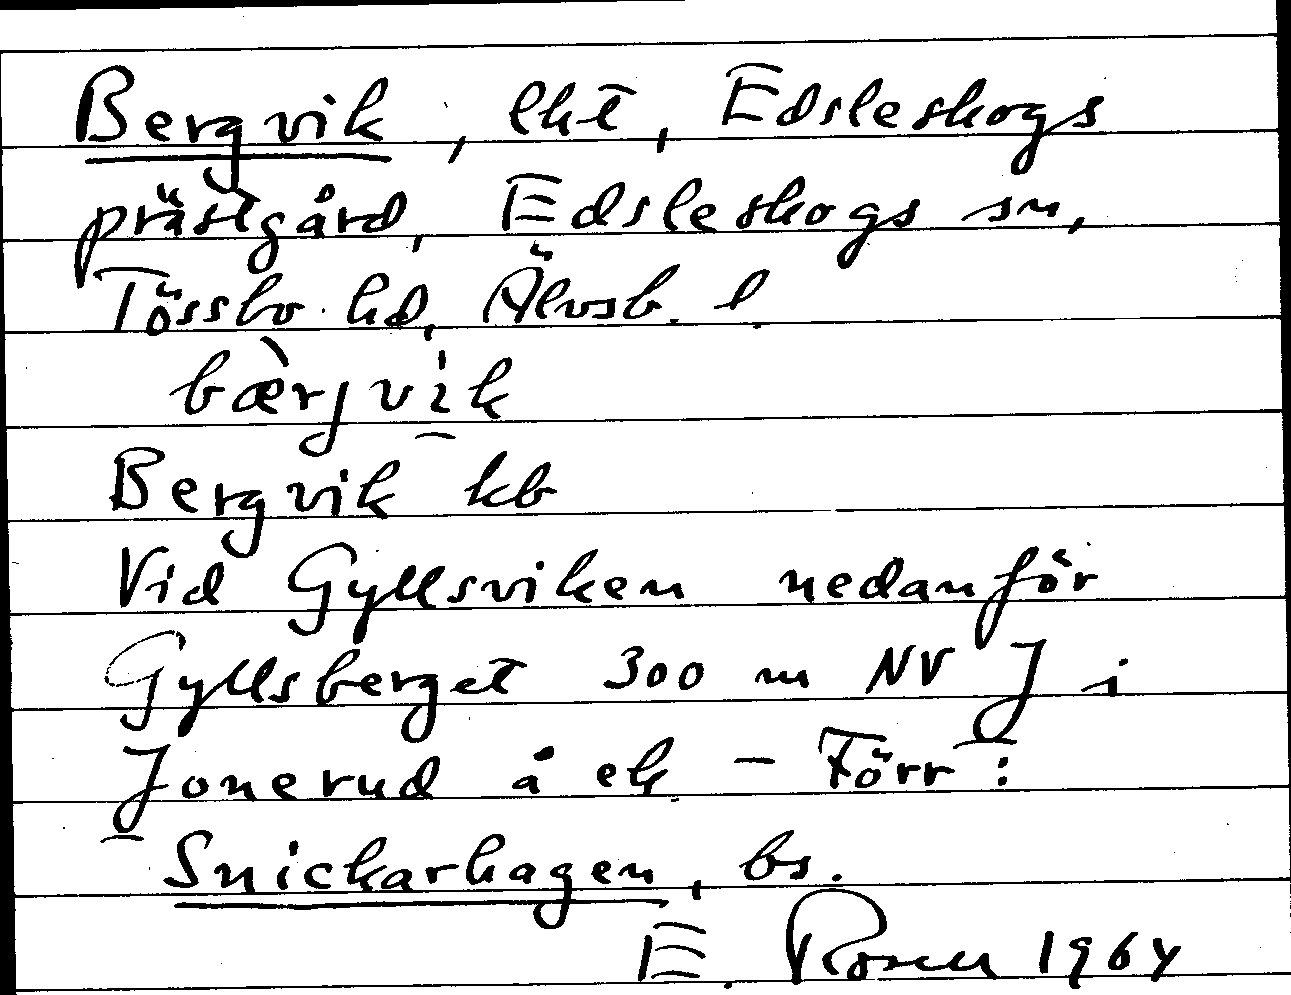 Bergvik, lht, Edsleskogs
prästgård, Edsleskogs sn,
Tössbo hd, Älvsb. l.
bærj̀vik
Bergvik kb
Vid Gyllsviken nedanför
Gyllsberget 300 m NV J i
Jonerud å ek. – Förr:
Snickarhagen, bs.
E. Rosen 1964